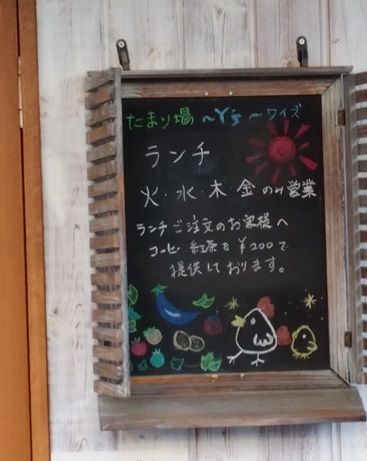 たまり場 ～Y's～ワイズ
ランチ
火・水・木・金のみ営業
ランチご注文のお客様へ
コーヒー 紅茶を¥200で
提供しております。